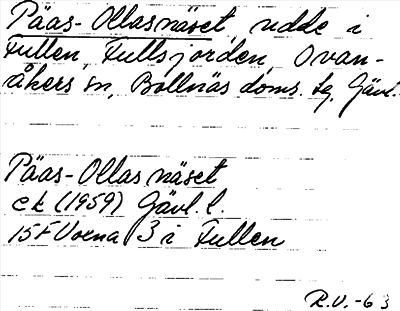 Päas-Ollasnäset, udde i
Fullen, Fullsjorden, Ovan-
åkers sn, Bollnäs doms. tg, Gävl.
Päas-Ollasnäset
ek (1959) Gävl. l.
15F Voxna 3 i Fullen
R.V. -63